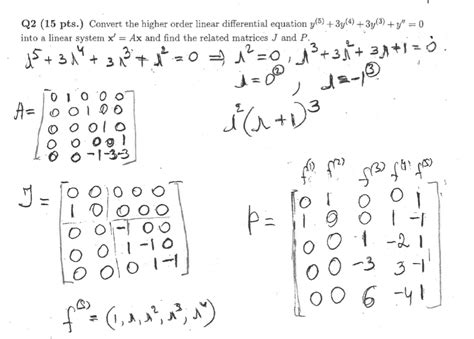 Q2 (15 pts.) Convert the higher order linear differential equation y⁽⁵⁾ + 3y⁽⁴⁾ + 3y⁽³⁾ + y″ = 0
into a linear system x′ = Ax and find the related matrices J and P.
λ⁵ + 3λ⁴ + 3λ³ + λ² = 0 ⇒ λ² = 0, λ³ + 3λ² + 3λ + 1 = 0.
λ = 0⁽²⁾, λ = -1⁽³⁾
λ²(λ+1)³
A = [
0 1 0 0 0
0 0 1 0 0
0 0 0 1 0
0 0 0 0 1
0 0 -1 -3 -3
]
J = [
0 0 0 0 0
1 0 0 0 0
0 0 -1 0 0
0 0 1 -1 0
0 0 0 1 -1
]
f⁽¹⁾ f⁽²⁾ f⁽³⁾ f⁽⁴⁾ f⁽⁵⁾
P = [
0 1 0 0 1
1 0 0 1 -1
0 0 1 -2 1
0 0 -3 3 -1
0 0 6 -4 1
]
f⁽⁵⁾ = (1, λ, λ², λ³, λ⁴)